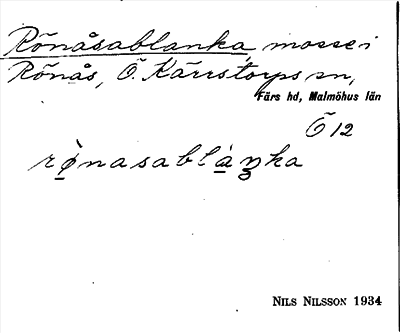 Rönåsablanka, mosse i
Rönås, Ö. Kärrstorps sn,
Färs hd, Malmöhus län
Ö 12
rò̱nasablá̱ŋka
NILS NILSSON 1934